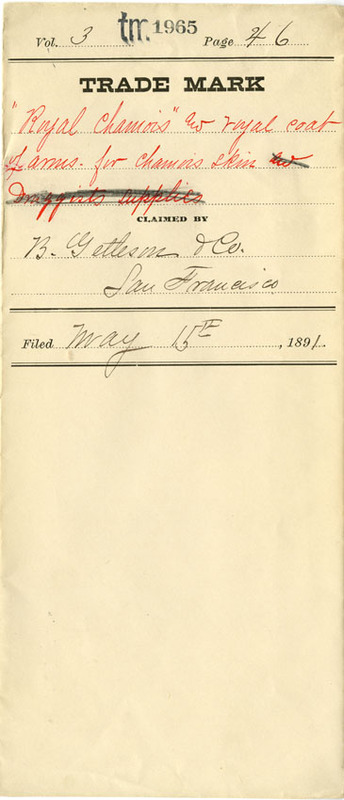 Vol. 3 tm. 1965 Page 46
TRADE MARK
"Royal Chamois" & royal coat
of arms. for chamois skin &
Druggists supplies
CLAIMED BY
B. Gettleson & Co.
San Francisco
Filed May 15th, 1891.